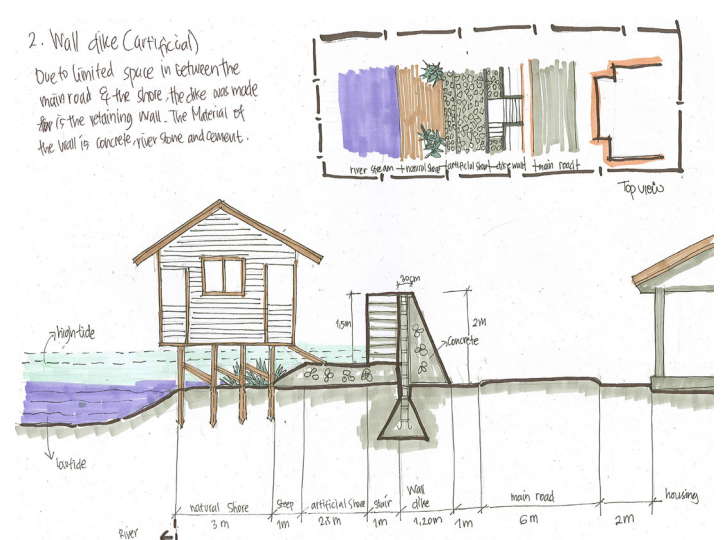 2. Wall dike (artificial)
Due to limited space in between the
main road & the shore, the dike was made
is the retaining wall. The Material of
the wall is concrete, river stone and cement.
river stream
natural shore
artificial shore
dike wall
main road
Top view
30cm
1,5m
2m
concrete
high-tide
lowtide
natural shore
steep
artificial shore
stair
Wall
dike
main road
housing
3m
1m
1m
1,20m
1m
6m
2m
River